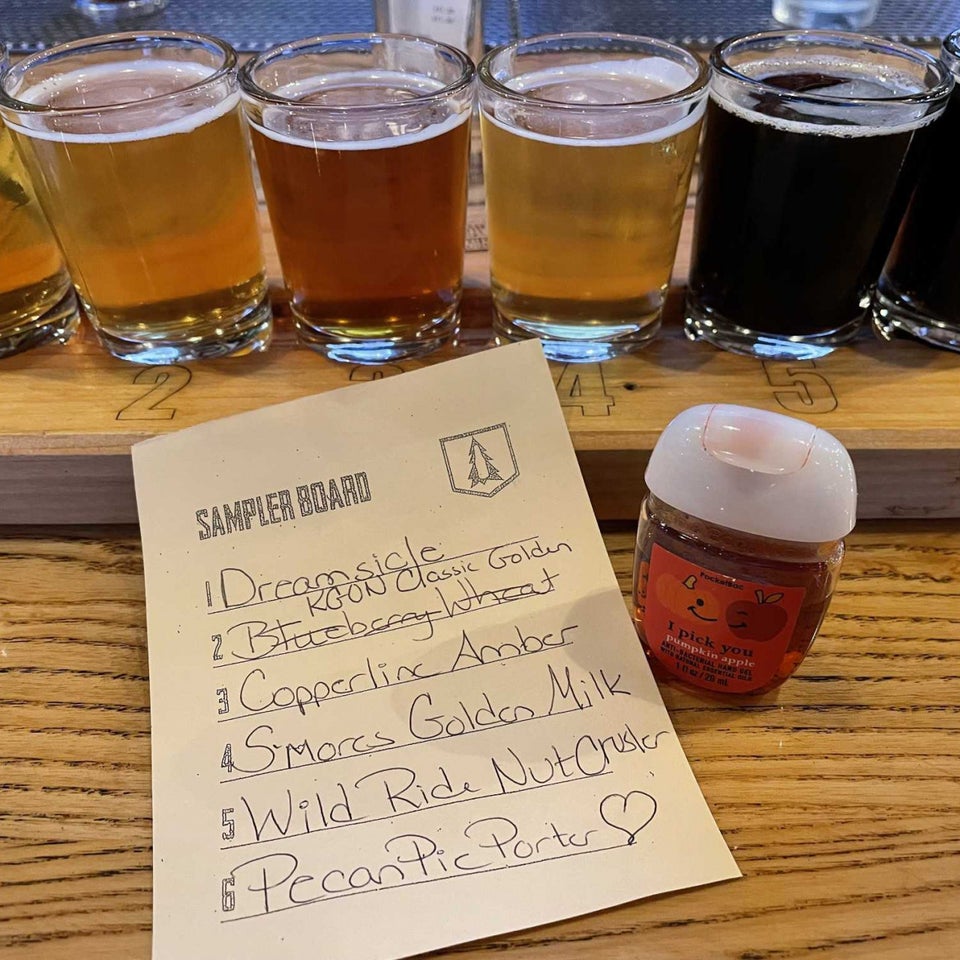 2
3
4
5
SAMPLER BOARD
1 Dreamsicle
KGON Classic Golden
2 Blueberry Wheat
3 Copperline Amber
4 S'mores Golden Milk
5 Wild Ride Nut Crusher
6 Pecan Pie Porter
PocketBac
I pick you
pumpkin apple
ANTI-BACTERIAL HAND GEL
WITH NATURAL ESSENTIAL OILS
1 fl oz / 29 mL